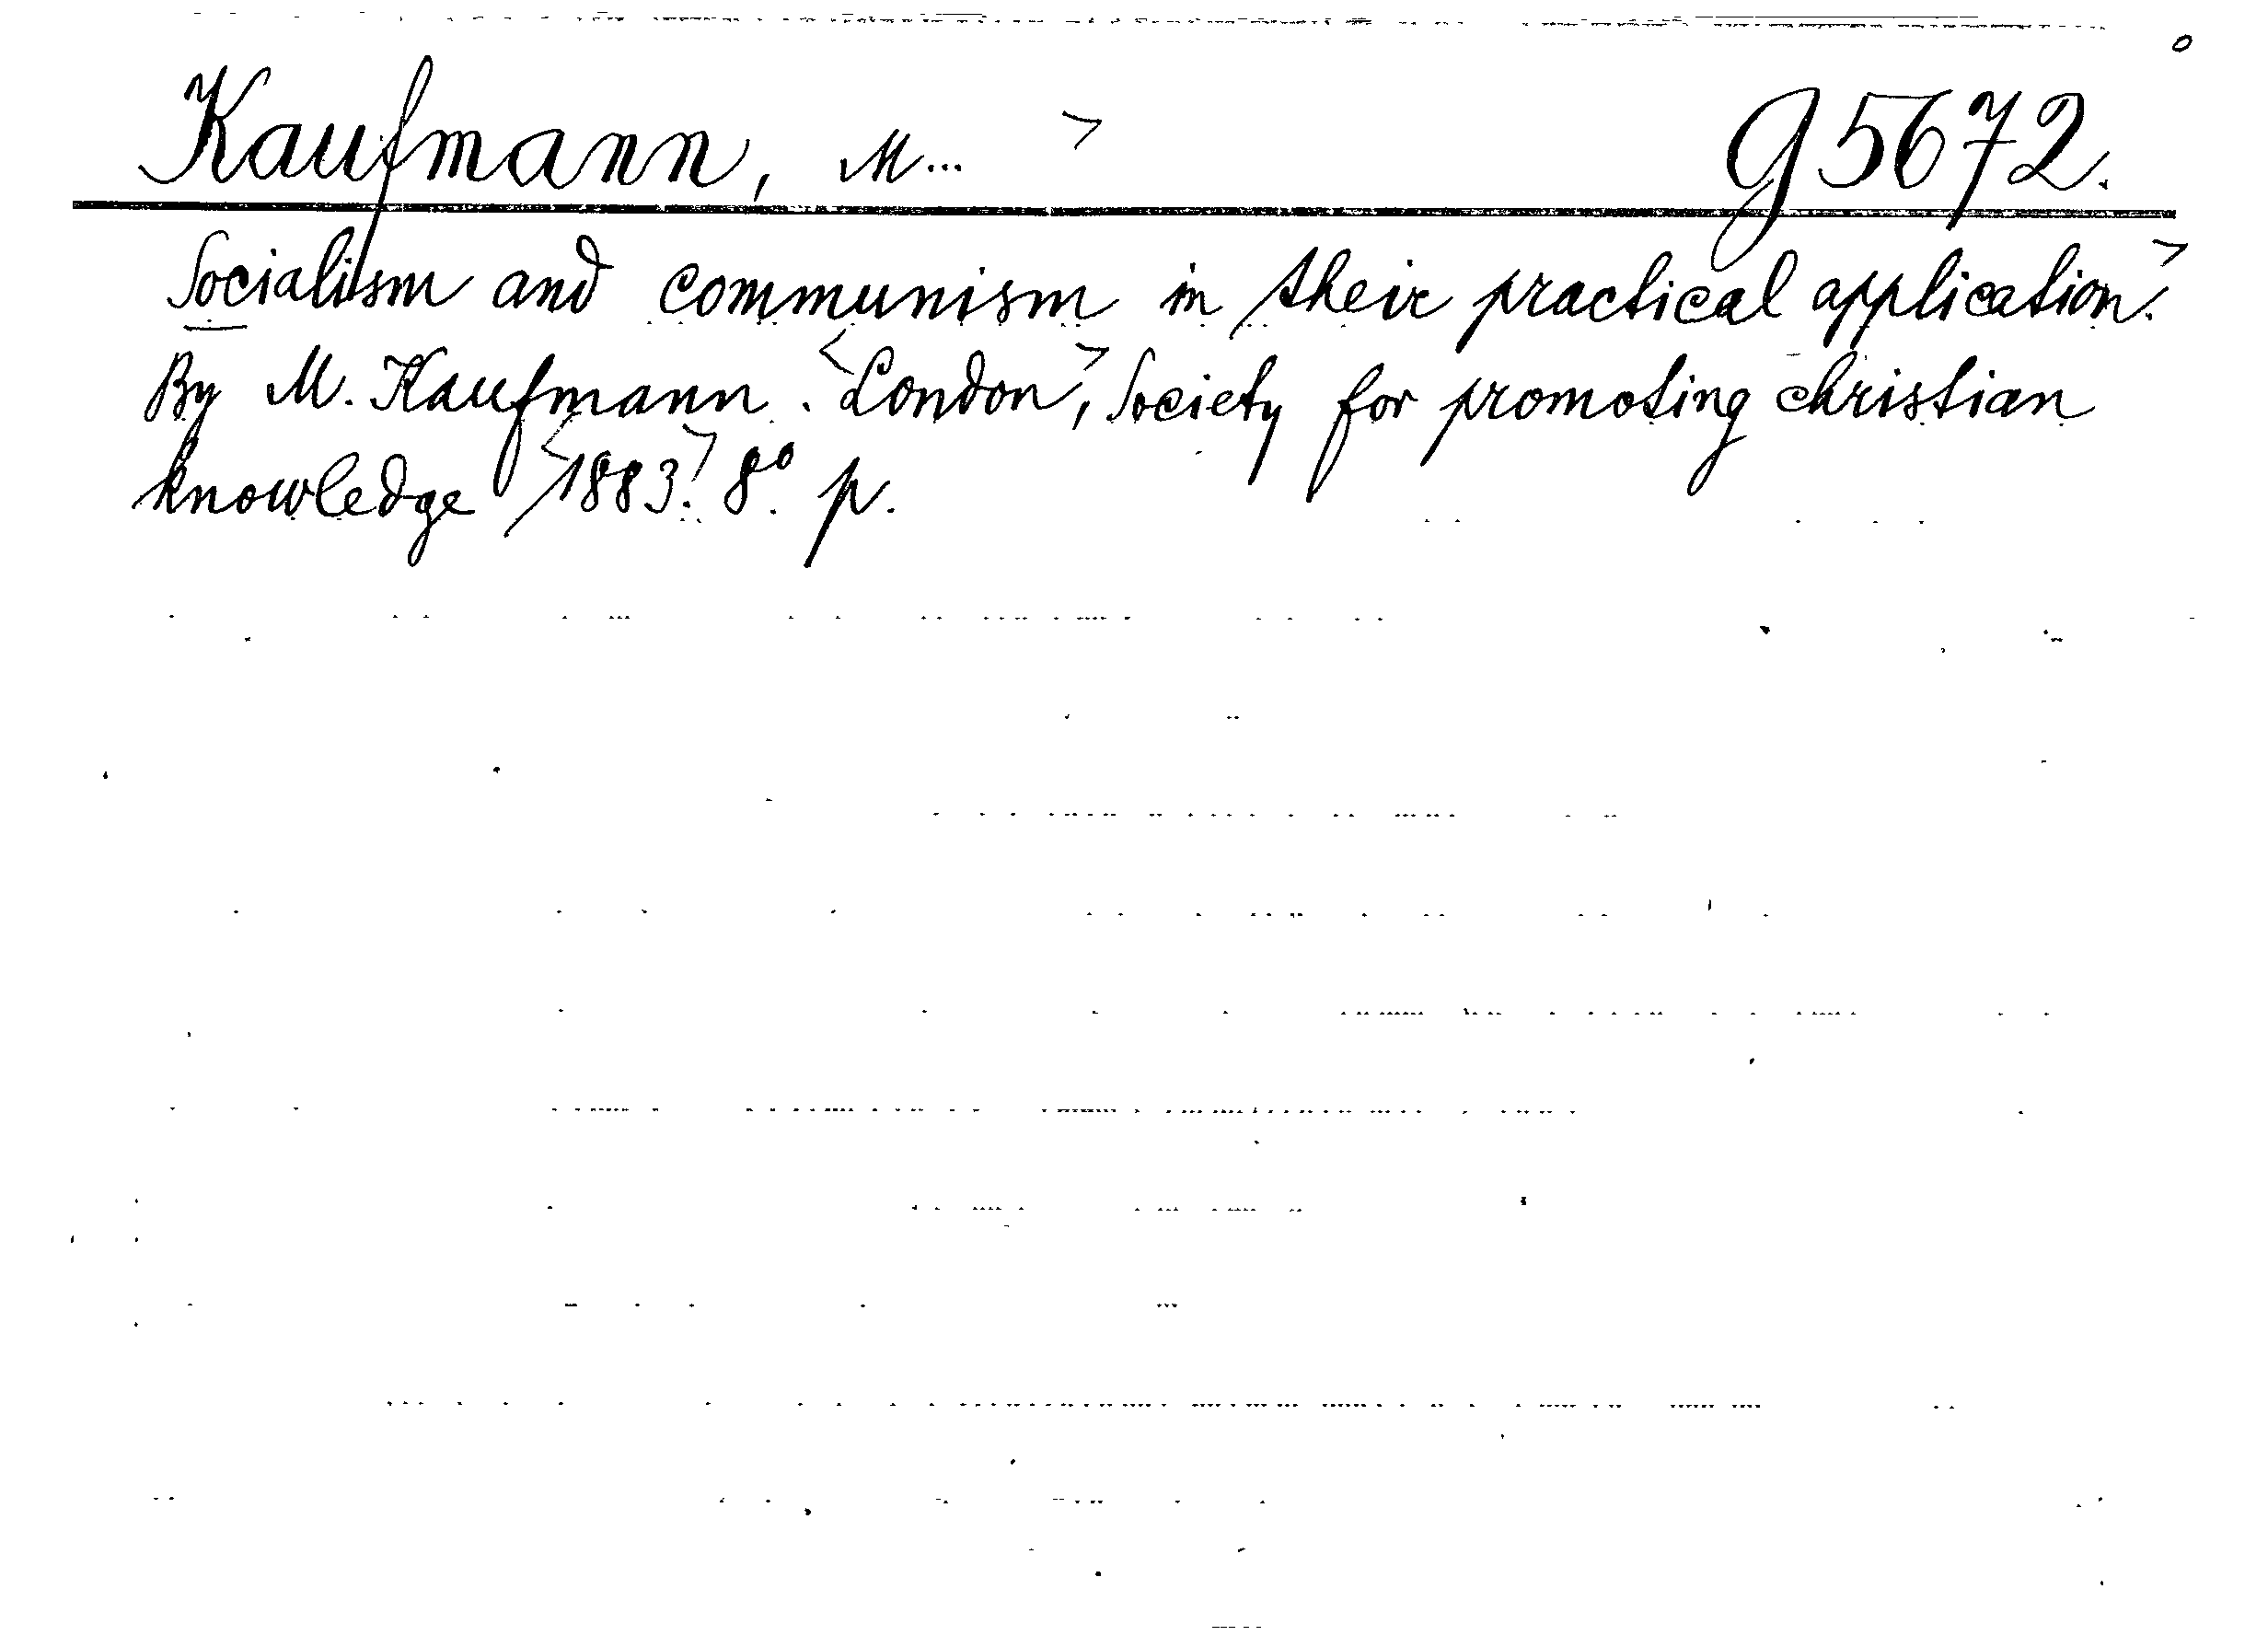 Kaufmann, M... > G5672.
Socialism and communism in their practical application.>
By M. Kaufmann. <London,> Society for promoting christian
knowledge <1883.> 8° p.